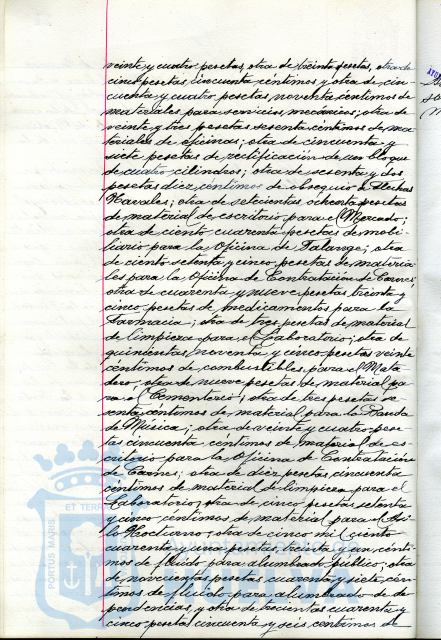 veinte y cuatro pesetas, otra de treinta pesetas, otra de
cinco pesetas cincuenta céntimos y otra de cin-
cuenta y cuatro pesetas, noventa céntimos de
materiales para servicios mecánicos; otra de
veinte y tres pesetas sesenta céntimos de ma-
teriales de oficinas; otra de cincuenta y
siete pesetas de rectificación de un bloque
de cuatro cilindros; otra de sesenta y dos
pesetas diez céntimos de obsequio a Flechas
Navales; otra de setecientas ochenta pesetas
de material de escritorio para el Mercado;
otra de ciento cuarenta pesetas de mobi-
liario para la Oficina de Falange; otra
de ciento setenta y cinco pesetas de materia-
les para la Oficina de Contratación de Carnes;
otra de cuarenta y nueve pesetas treinta y
cinco pesetas de medicamentos para la
Farmacia; otra de tres pesetas de material
de limpieza para el Laboratorio; otra de
quinientas noventa y cinco pesetas veinte
céntimos de combustibles para el Mata
dero; otra de nueve pesetas de material pa-
ra el Cementerio; otra de tres pesetas se
senta céntimos de material para la Banda
de Música; otra de veinte y cuatro pese-
tas cincuenta céntimos de material de es-
critorio para la Oficina de Contratación
de Carnes; otra de diez pesetas cincuenta
céntimos de material de limpieza para el
Laboratorio; otra de cinco pesetas setenta
y cinco céntimos de material para el Asi-
lo Nocturno; otra de cinco mil ciento
cuarenta y una pesetas treinta y un cénti-
mos de fluido para alumbrado público; otra
de novecientas pesetas cuarenta y siete cén-
timos de fluido para alumbrado de de-
pendencias, y otra de trecientas cuarenta y
cinco pesetas cincuenta y seis céntimos de
PORTUS MARIS
ET TERRA
Ayuntamiento de